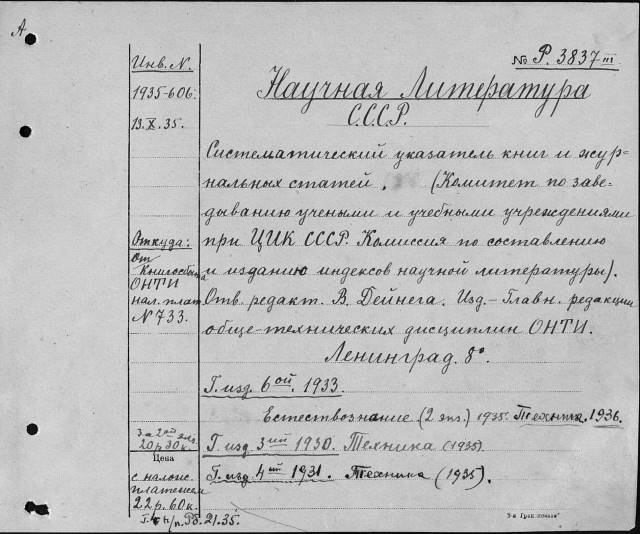 А
Инв. N.
1935-606.
13.X.35.
Откуда:
От
Книгосбыта
ОНТИ
нал. плат
N 733.
За 2ой экз.
20р 30к.
Цена
с налож.
платежем
22р. 60к.
№ Р. 3837 III
Научная Литература
С.С.С.Р.
Систематический указатель книг и жур-
нальных статей. (Комитет по заве-
дыванию учеными и учебными учреждениями
при ЦИК СССР. Комиссия по составлению
и изданию индексов научной литературы).
Отв. редакт. В. Дейнега. Изд.-Главн. редакции
обще-технических дисциплин ОНТИ.
Ленинград. 8°.
Г. изд. 6ой. 1933.
Естествознание (2 экз.) 1935. Техника. 1936.
Г. изд. 3ий 1930. Техника (1935).
Г. изд. 4ый 1931. Техника (1935).
21.35.